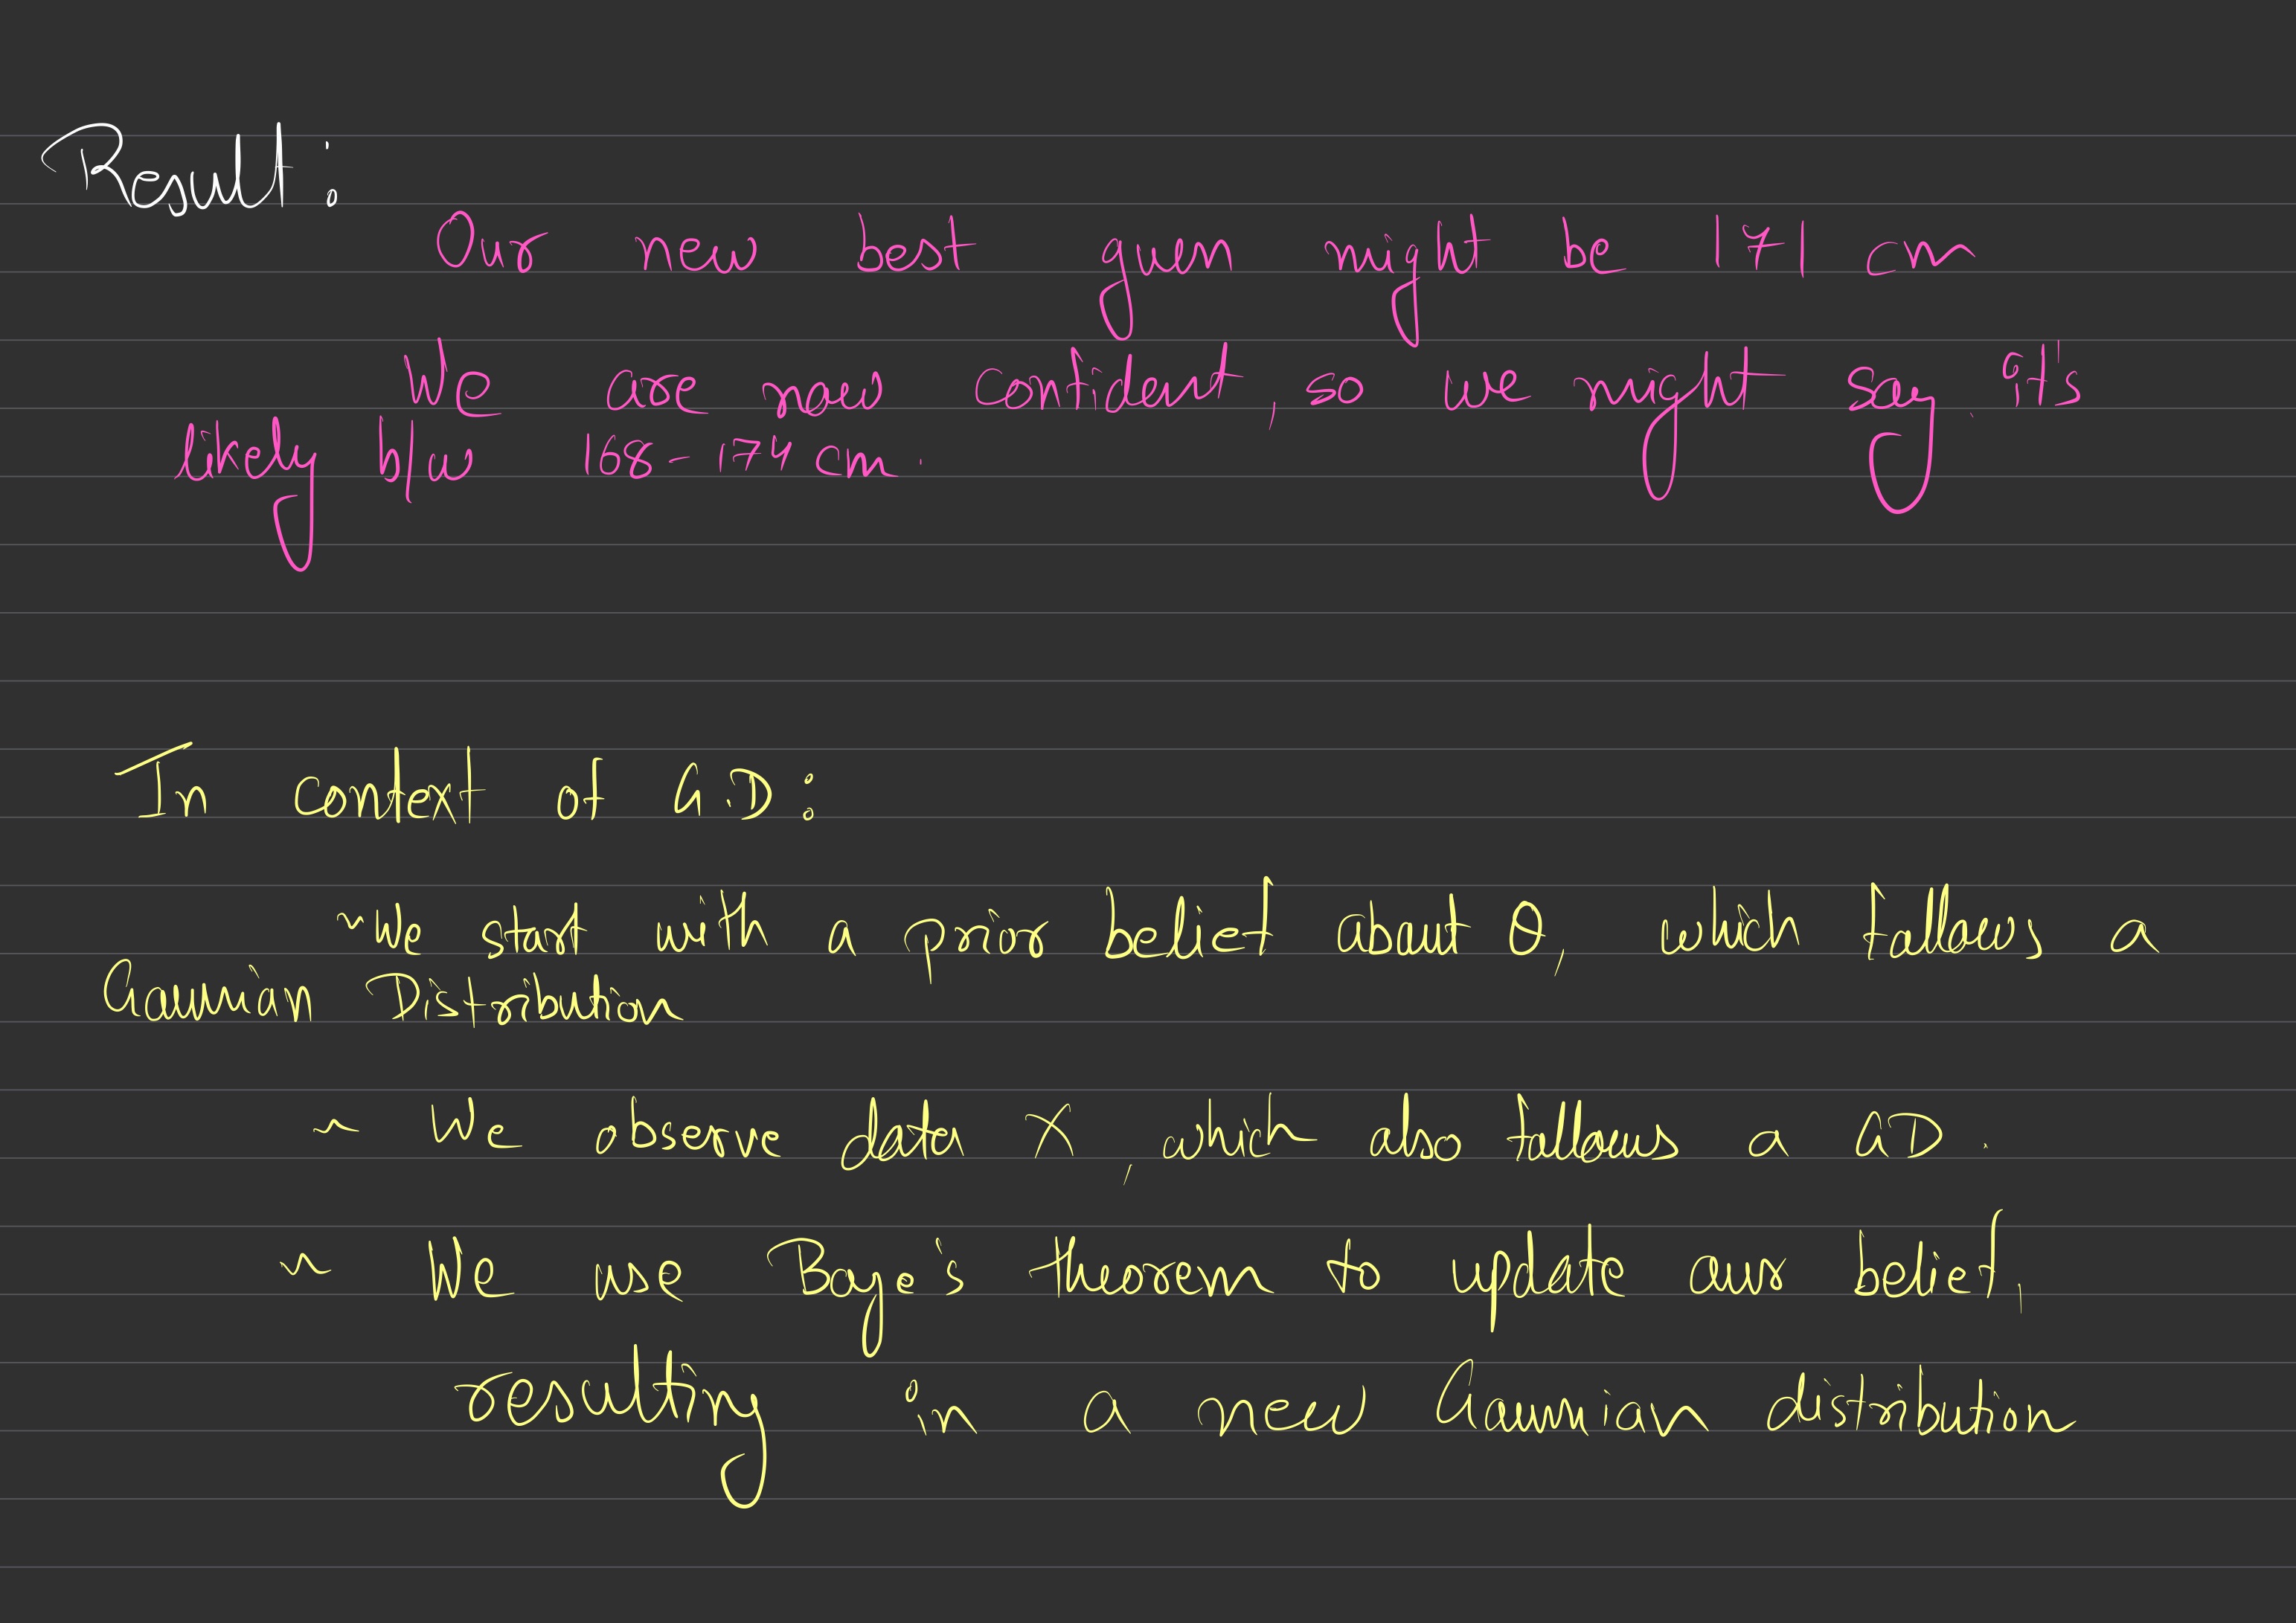 Result:
Our new best guess might be 171 cm
We are now confident, so we might say it's
likely b/w 168-174 cm.
In context of G.D:
~ We start with a prior belief about θ, which follows a
Gaussian Distribution
~ We observe data X, which also follows a GD.
~ We use Baye's theorem to update our belief,
resulting in a new Gaussian distribution